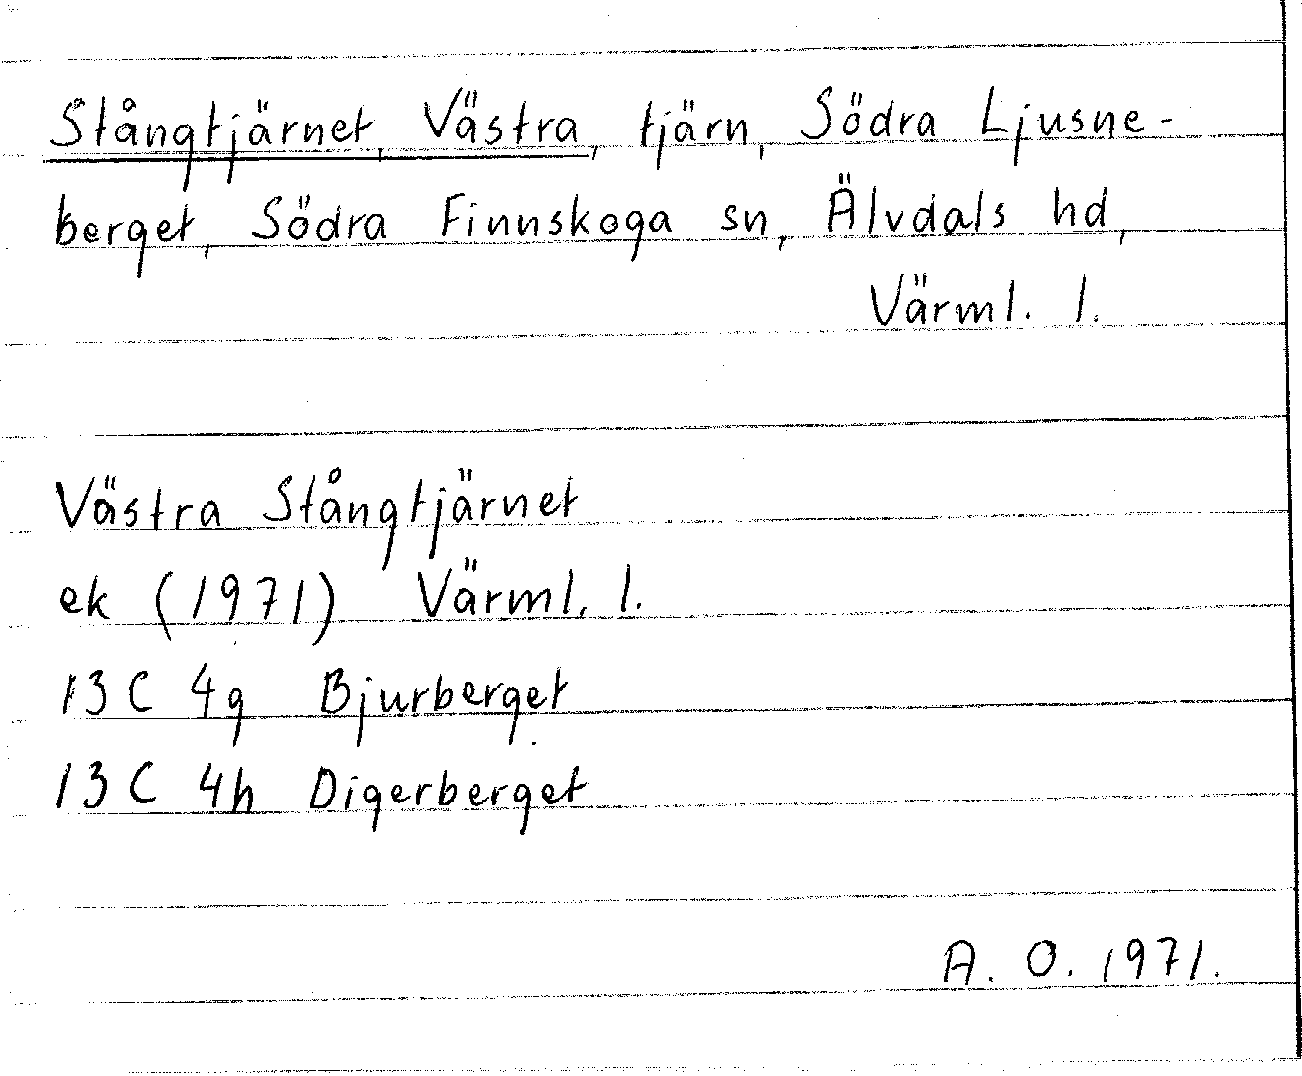 Stångtjärnet, Västra, tjärn, Södra Ljusne-
berget, Södra Finnskoga sn, Älvdals hd,
Värml. l.
Västra Stångtjärnet
ek (1971) Värml. l.
13 C 4g Bjurberget
13 C 4h Digerberget
A. O. 1971.